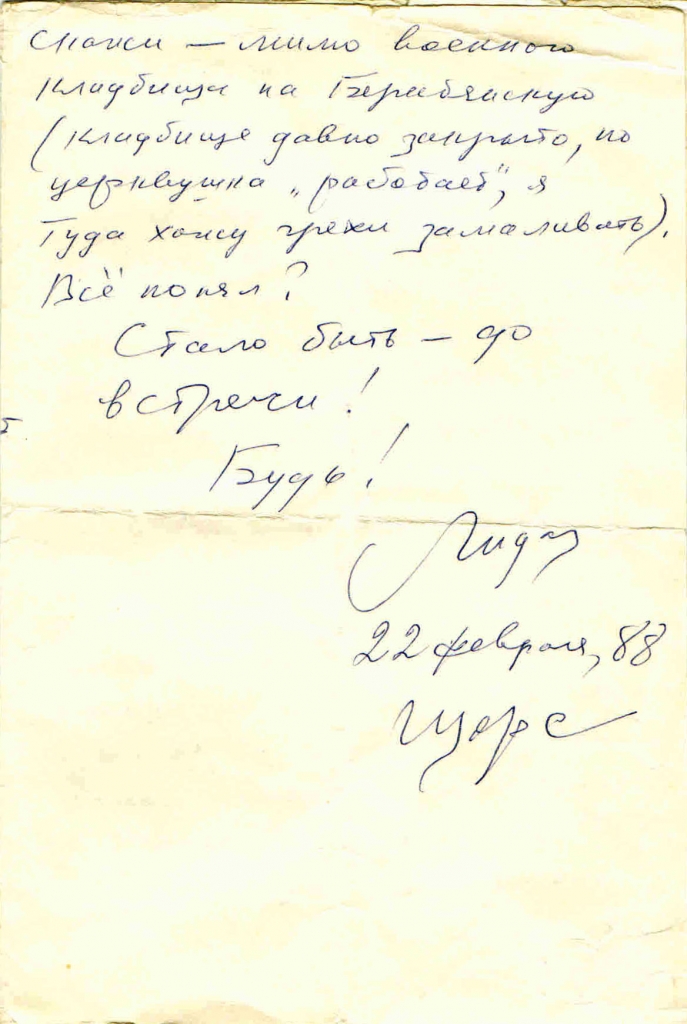 скажи — мимо военного
кладбища на Барабинскую
(кладбище давно закрыто, но
церквушка „работает“, я
туда хожу грехи замаливать).
Всё понял?
Стало быть — до
встречи!
Будь!
Лида
22 февраля, 88
Щорс